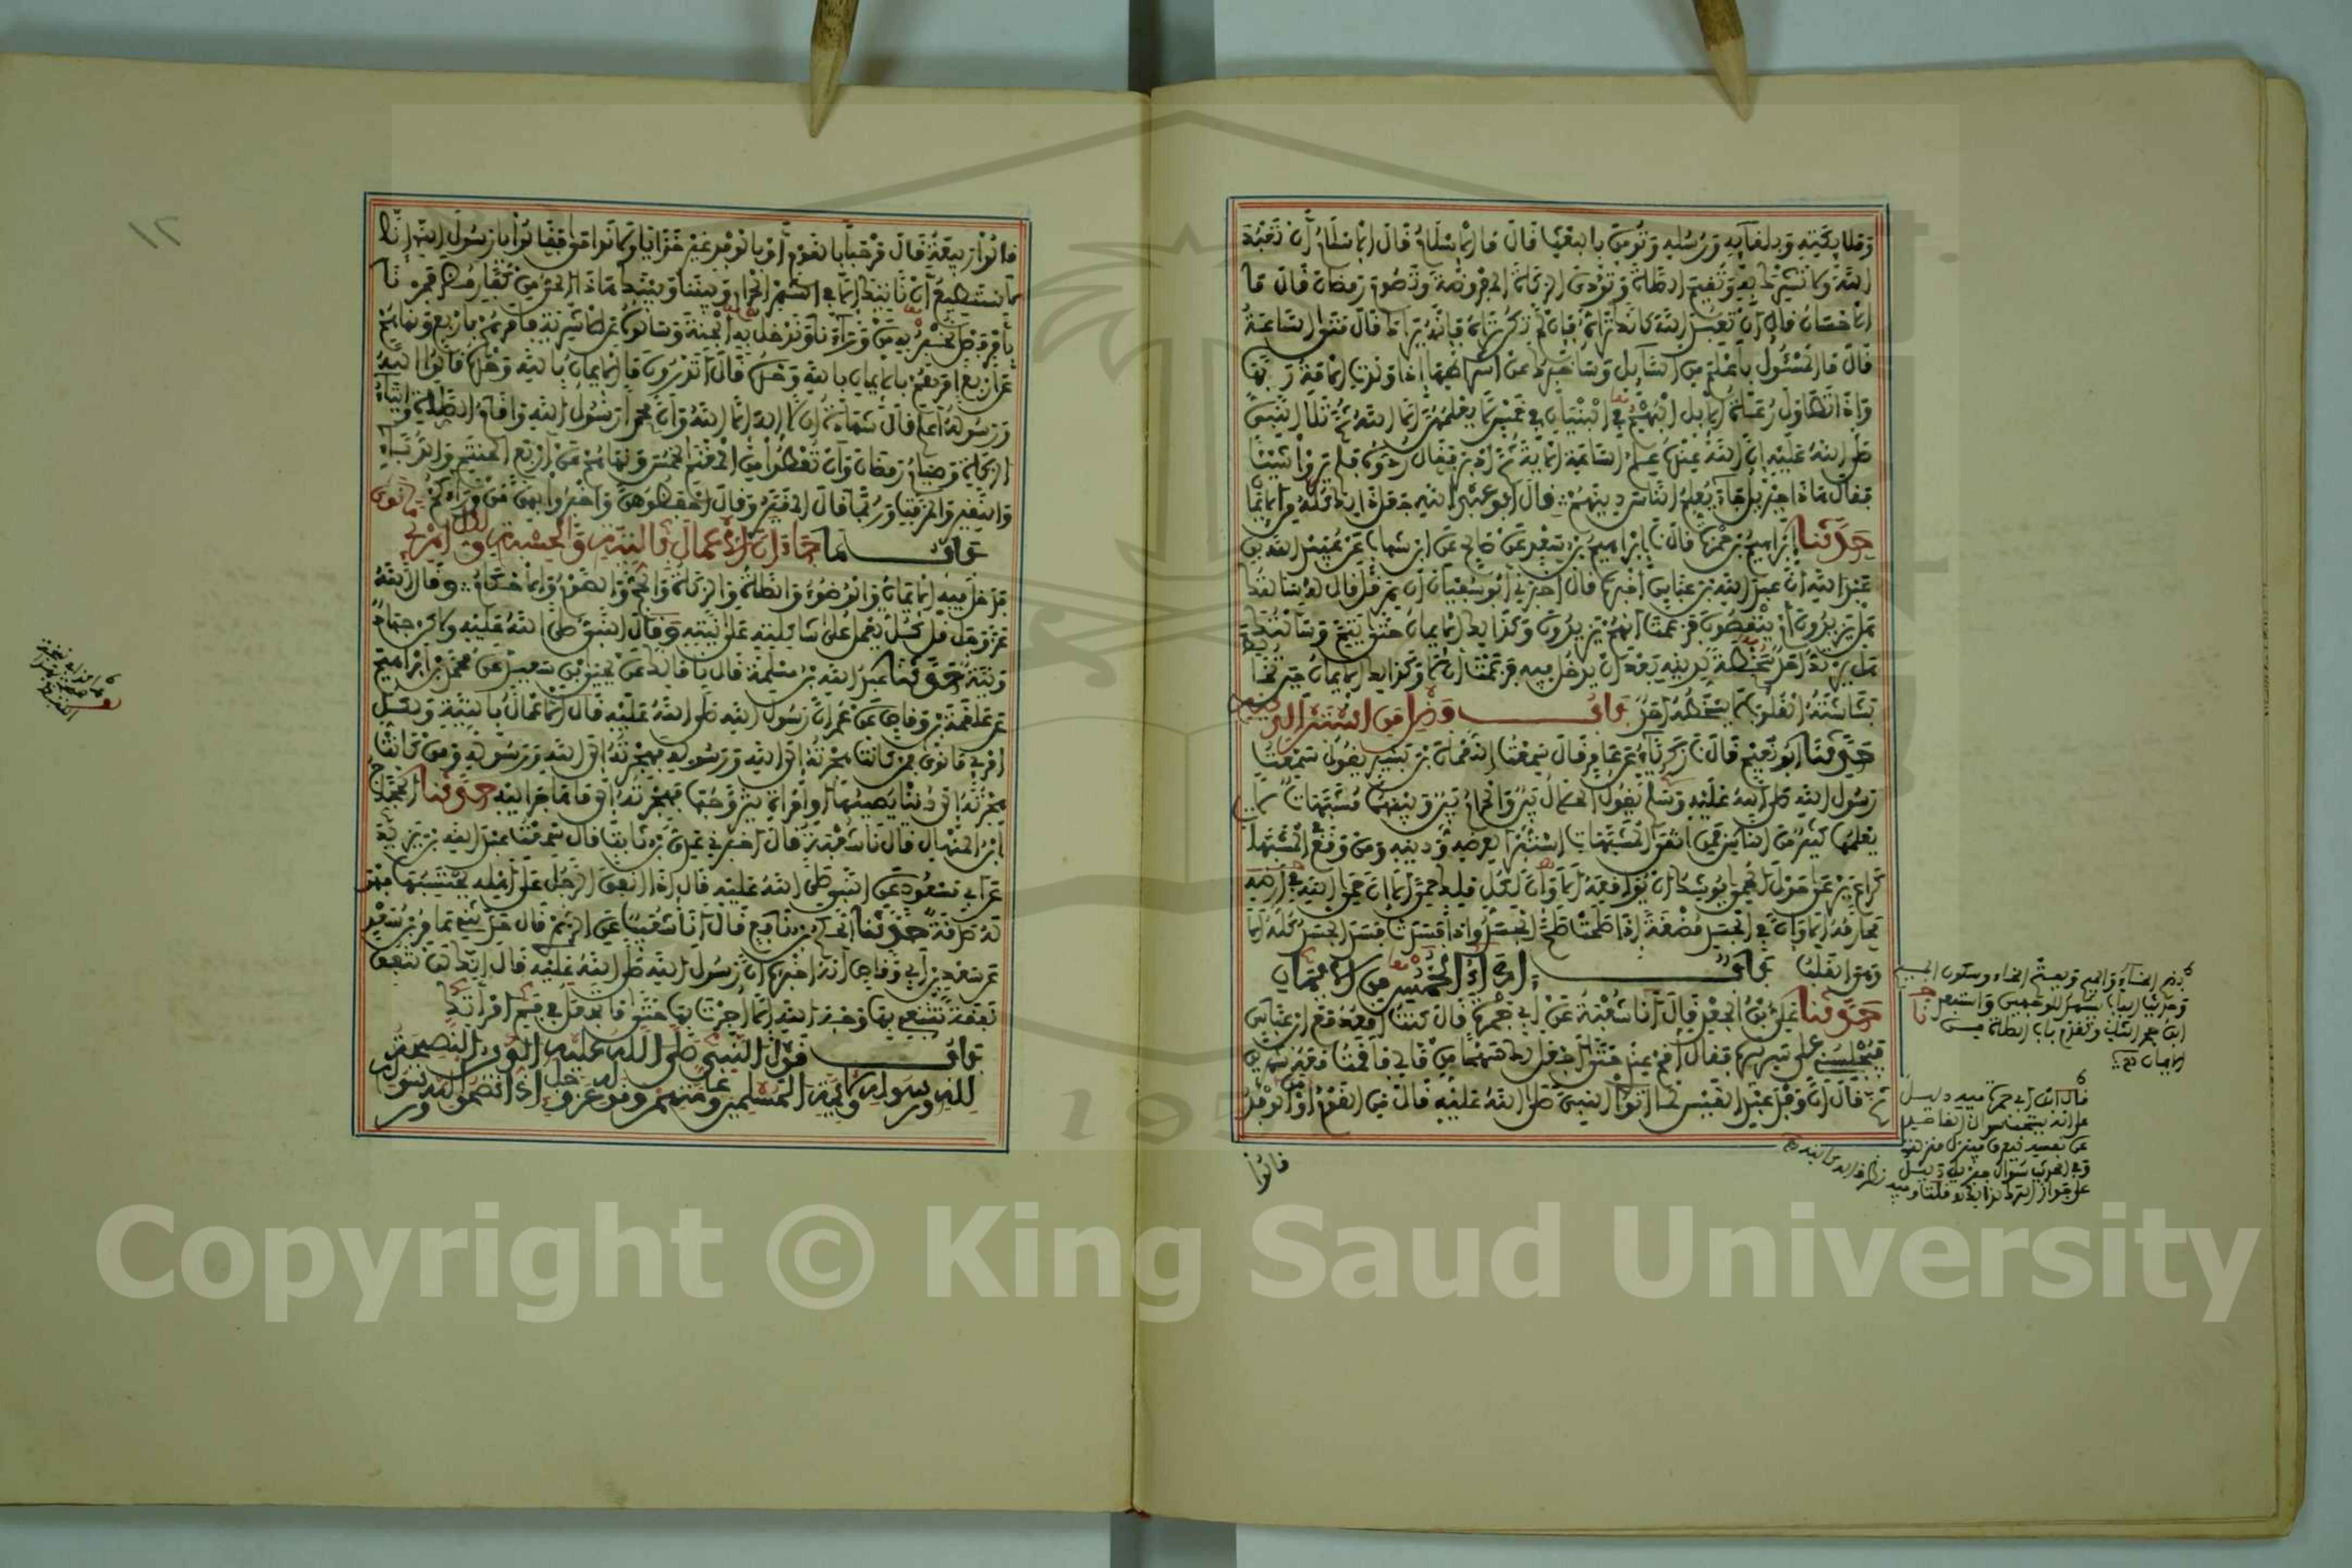 وملائكته وبلقائه ورسله وتومن بالبعث قال ما الاسلام قال الاسلام أن تعبد
الله ولا تشرك به وتقيم الصلاة وتودي الزكاة المفروضة وتصوم رمضان قال ما
الاحسان قال أن تعبد الله كأنك تراه فإن لم تكن تراه فإنه يراك قال متى الساعة
قال ما المسئول بأعلم من السائل وسأخبرك عن أشراطها إذا ولدت الامة ربها
وإذا تطاول رعاة الابل البهم في البنيان في خمس لا يعلمهن إلا الله ثم تلا النبي
صلى الله عليه إن الله عنده علم الساعة الآية ثم أدبر فقال ردوه فلم يروا شيئا
فقال هذا جبريل جاء يعلم الناس دينهم قال أبو عبد الله جعل ذلك كله من الايمان
حدثنا إبراهيم بن حمزة قال نا إبراهيم بن سعد عن صالح عن ابن شهاب عن عبيد الله بن
عبد الله أن عبد الله بن عباس أخبره قال أخبرني أبو سفيان أن هرقل قال له سألتك
هل يزيدون أم ينقصون فزعمت أنهم يزيدون وكذلك الايمان حتى يتم وسألتك
هل يرتد أحد سخطة لدينه بعد أن يدخل فيه فزعمت أن لا وكذلك الايمان حين تخالط
بشاشته القلوب لا يسخطه أحد باب فضل من استبرأ لدينه
حدثنا أبو نعيم قال نا زكرياء عن عامر قال سمعت النعمان بن بشير يقول سمعت
رسول الله صلى الله عليه وسلم يقول الحلال بين والحرام بين وبينهما مشبهات لا
يعلمها كثير من الناس فمن اتقى المشبهات استبرأ لعرضه ودينه ومن وقع في المشبهات
كراع يرعى حول الحمى يوشك أن يواقعه ألا وإن لكل ملك حمى ألا إن حمى الله في أرضه
محارمه ألا وإن في الجسد مضغة إذا صلحت صلح الجسد وإذا فسدت فسد الجسد كله ألا
وهي القلب باب أداء الخمس من الايمان
حدثنا علي بن الجعد قال أنا شعبة عن أبي جمرة قال كنت أقعد مع ابن عباس
فيجلسني على سريره فقال أقم عندي حتى أجعل لك سهما من مالي فأقمت معه شهرين
ثم قال إن وفد عبد القيس لما أتوا النبي صلى الله عليه قال من القوم أو من الوفد
قالوا
قال ابن أبي جمرة فيه دليل
قالوا ربيعة قال مرحبا بالقوم أو بالوفد غير خزايا ولا ندامى فقالوا يا رسول الله إنا
لا نستطيع أن نأتيك إلا في الشهر الحرام وبيننا وبينك هذا الحي من كفار مضر فمرنا
بأمر فصل نخبر به من وراءنا وندخل به الجنة وسألوه عن الاشربة فأمرهم بأربع ونهاهم
عن أربع أمرهم بالايمان بالله وحده قال أتدرون ما الايمان بالله وحده قالوا الله
ورسوله أعلم قال شهادة أن لا إله إلا الله وأن محمدا رسول الله وإقام الصلاة وإيتاء
الزكاة وصيام رمضان وأن تعطوا من المغنم الخمس ونهاهم عن أربع الحنتم والدباء
والنقير والمزفت وربما قال المقير وقال احفظوهن وأخبروا بهن من وراءكم
باب ما جاء أن الأعمال بالنية والحسبة ولكل امرئ ما نوى
فدخل فيه الايمان والوضوء والصلاة والزكاة والحج والصوم والاحكام وقال الله
عز وجل قل كل يعمل على شاكلته على نيته وقال النبي صلى الله عليه ولكن جهاد
ونية حدثنا عبد الله بن مسلمة قال نا مالك عن يحيى بن سعيد عن محمد بن إبراهيم
عن علقمة بن وقاص عن عمر أن رسول الله صلى الله عليه قال الاعمال بالنية ولكل
امرئ ما نوى فمن كانت هجرته إلى الله ورسوله فهجرته إلى الله ورسوله ومن كانت
هجرته إلى دنيا يصيبها أو امرأة يتزوجها فهجرته إلى ما هاجر إليه حدثنا حجاج
ابن المنهال قال نا شعبة قال أخبرني عدي بن ثابت قال سمعت عبد الله بن يزيد
عن أبي مسعود عن النبي صلى الله عليه قال إذا أنفق الرجل على أهله يحتسبها فهو
له صدقة حدثنا الحكم بن نافع قال أنا شعيب عن الزهري قال حدثني عامر بن سعد
عن سعد بن أبي وقاص أنه أخبره أن رسول الله صلى الله عليه قال إنك لن تنفق
نفقة تبتغي بها وجه الله إلا أجرت بها حتى ما تجعل في فم امرأتك
باب قول النبي صلى الله عليه الدين النصيحة
لله ولرسوله ولأئمة المسلمين وعامتهم وقوله عز وجل إذا نصحوا لله ورسوله
١٢
Copyright © King Saud University
195